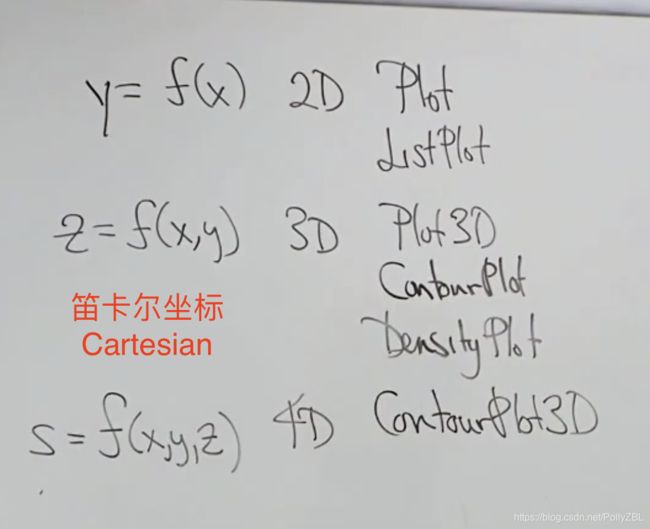 y = f(x) 2D Plot
ListPlot
z = f(x,y) 3D Plot3D
ContourPlot
笛卡尔坐标
Cartesian
DensityPlot
s = f(x,y,z) 4D ContourPlot3D
https://blog.csdn.net/PollyZBL